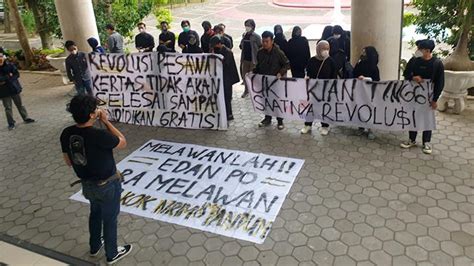 REVOLUSI PESAWAT
KERTAS TIDAK AKAN
SELESAI SAMPAI
PENDIDIKAN GRATIS
UKT KIAN TINGGI
SAATNYA REVOLU$I
MELAWANLAH!!
EDAN PO
RA MELAWAN
KOK